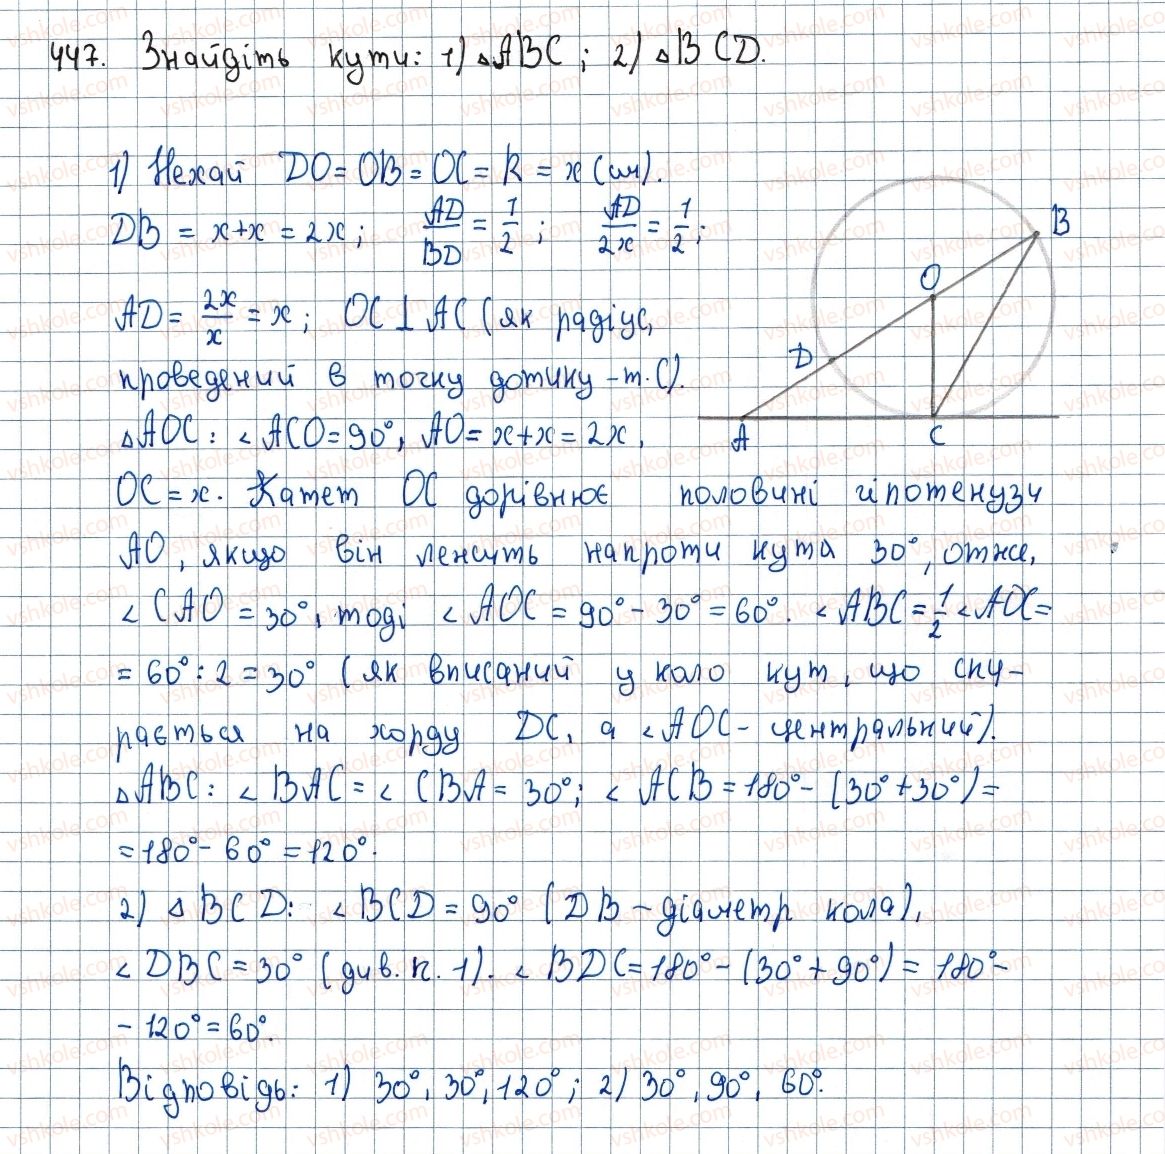 447. Знайдіть кути: 1) △ABC; 2) △BCD.
1) Нехай DO = OB = OC = R = x (см).
DB = x+x = 2x; AD/BD = 1/2; AD/2x = 1/2;
AD = 2x/x = x; OC⊥AC (як радіус,
проведений в точку дотику - т. C).
△AOC: ∠ACO = 90°, AO = x+x = 2x,
OC = x. Катет OC дорівнює половині гіпотенузи
AO, якщо він лежить напроти кута 30°, отже,
∠CAO = 30°, тоді ∠AOC = 90° - 30° = 60°. ∠ABC = 1/2 ∠AOC =
= 60° : 2 = 30° (як вписаний у коло кут, що спи-
рається на хорду DC, а ∠AOC - центральний).
△ABC: ∠BAC = ∠CBA = 30°; ∠ACB = 180° - (30° + 30°) =
= 180° - 60° = 120°.
2) △BCD: ∠BCD = 90° (DB - діаметр кола),
∠DBC = 30° (див. п. 1). ∠BDC = 180° - (30° + 90°) = 180° -
- 120° = 60°.
Відповідь: 1) 30°, 30°, 120°; 2) 30°, 90°, 60°.
B
O
D
A
C
vshkole.com